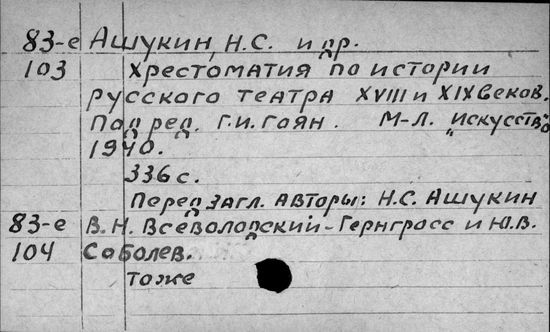 83-е Ашукин, Н.С. и др.
103 Хрестоматия по истории
русского театра XVIII и XIX веков.
Под ред. Г.И. Гоян. М-Л. „Искусство"
1940.
336 с.
Перед загл. авторы: Н.С. Ашукин
83-е В.Н. Всеволодский-Гернгросс и Ю.В.
104 Соболев.
Тоже